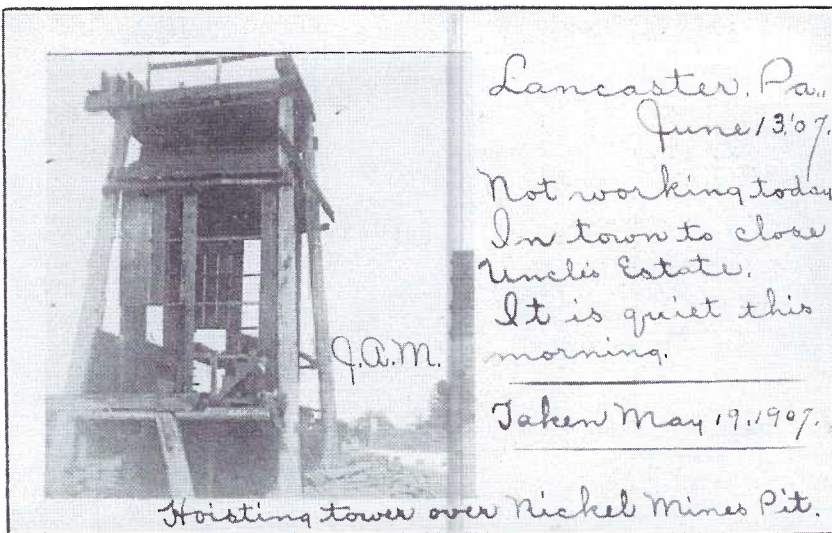 Lancaster, Pa.,
June 13,'07.
Not working today
In town to close
Uncle's Estate.
It is quiet this
morning.
J.A.M.
Taken May 19, 1907.
Hoisting tower over Nickel Mines Pit.